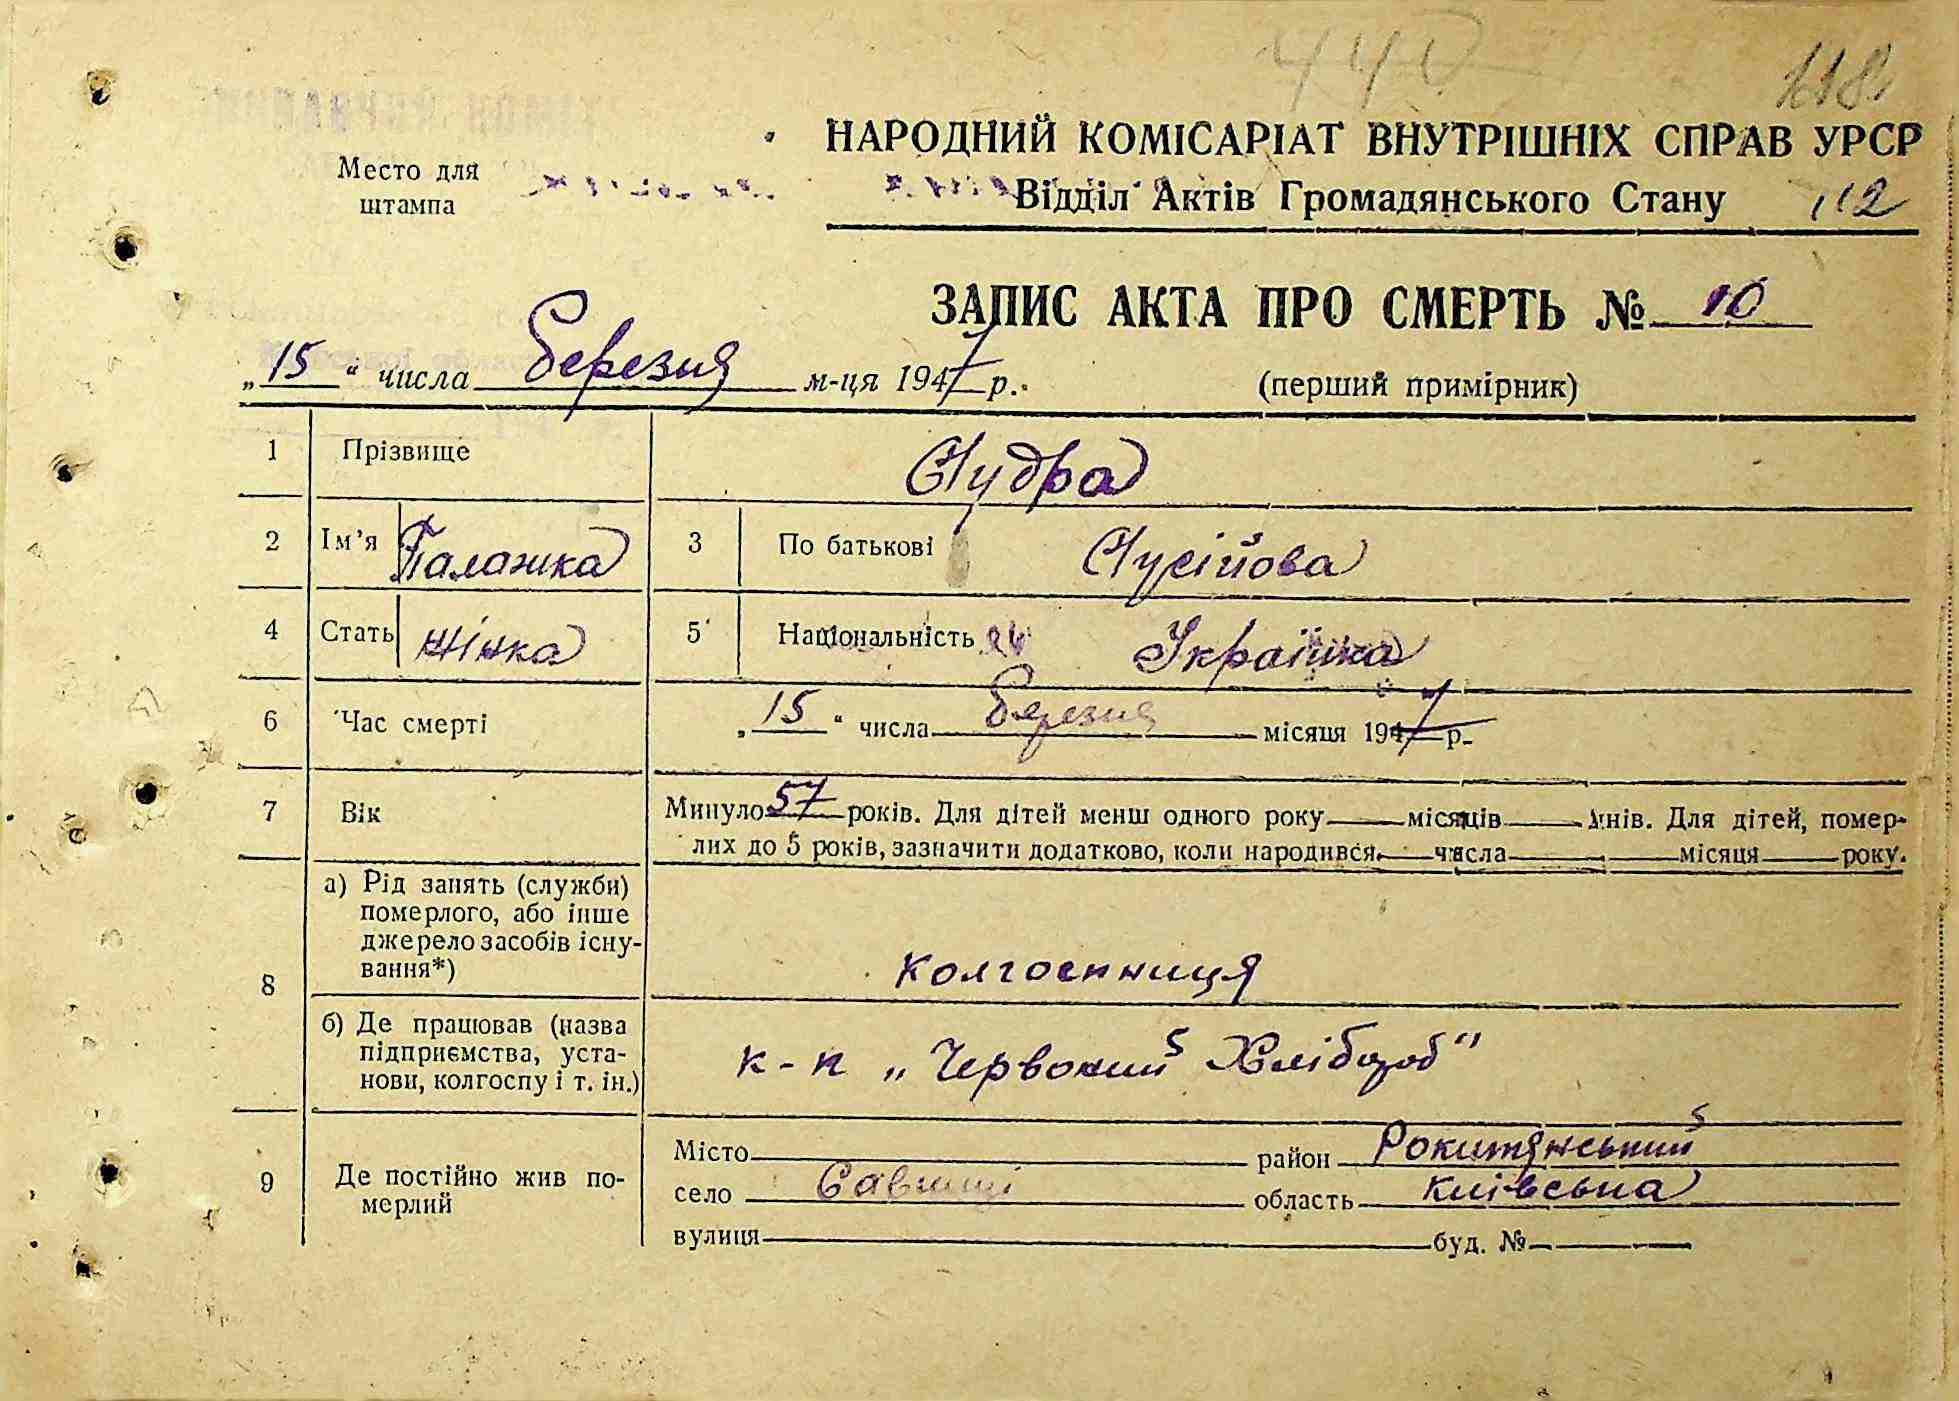 440
118
Место для
штампа
НАРОДНИЙ КОМІСАРІАТ ВНУТРІШНІХ СПРАВ УРСР
Відділ Актів Громадянського Стану 112
ЗАПИС АКТА ПРО СМЕРТЬ № 10
„15“ числа березня м-ця 1947 р.
(перший примірник)
1 Прізвище Нудра
2 Ім'я Палажка 3 По батькові
4 Стать жінка 5 Національність Українка
6 Час смерті „15“ числа березня місяця 1947 р.
7 Вік Минуло 57 років. Для дітей менш одного року — місяців — днів. Для дітей, помер-
лих до 5 років, зазначити додатково, коли народився — числа — місяця — року.
8 а) Рід занять (служби)
померлого, або інше
джерело засобів існу-
вання*)
колгоспниця
б) Де працював (назва
підприємства, уста-
нови, колгоспу і т. ін.)
к-п „Червоний Хлібороб"
9 Де постійно жив по-
мерлий
Місто район Рокитянський
село Савинці область київська
вулиця буд. №